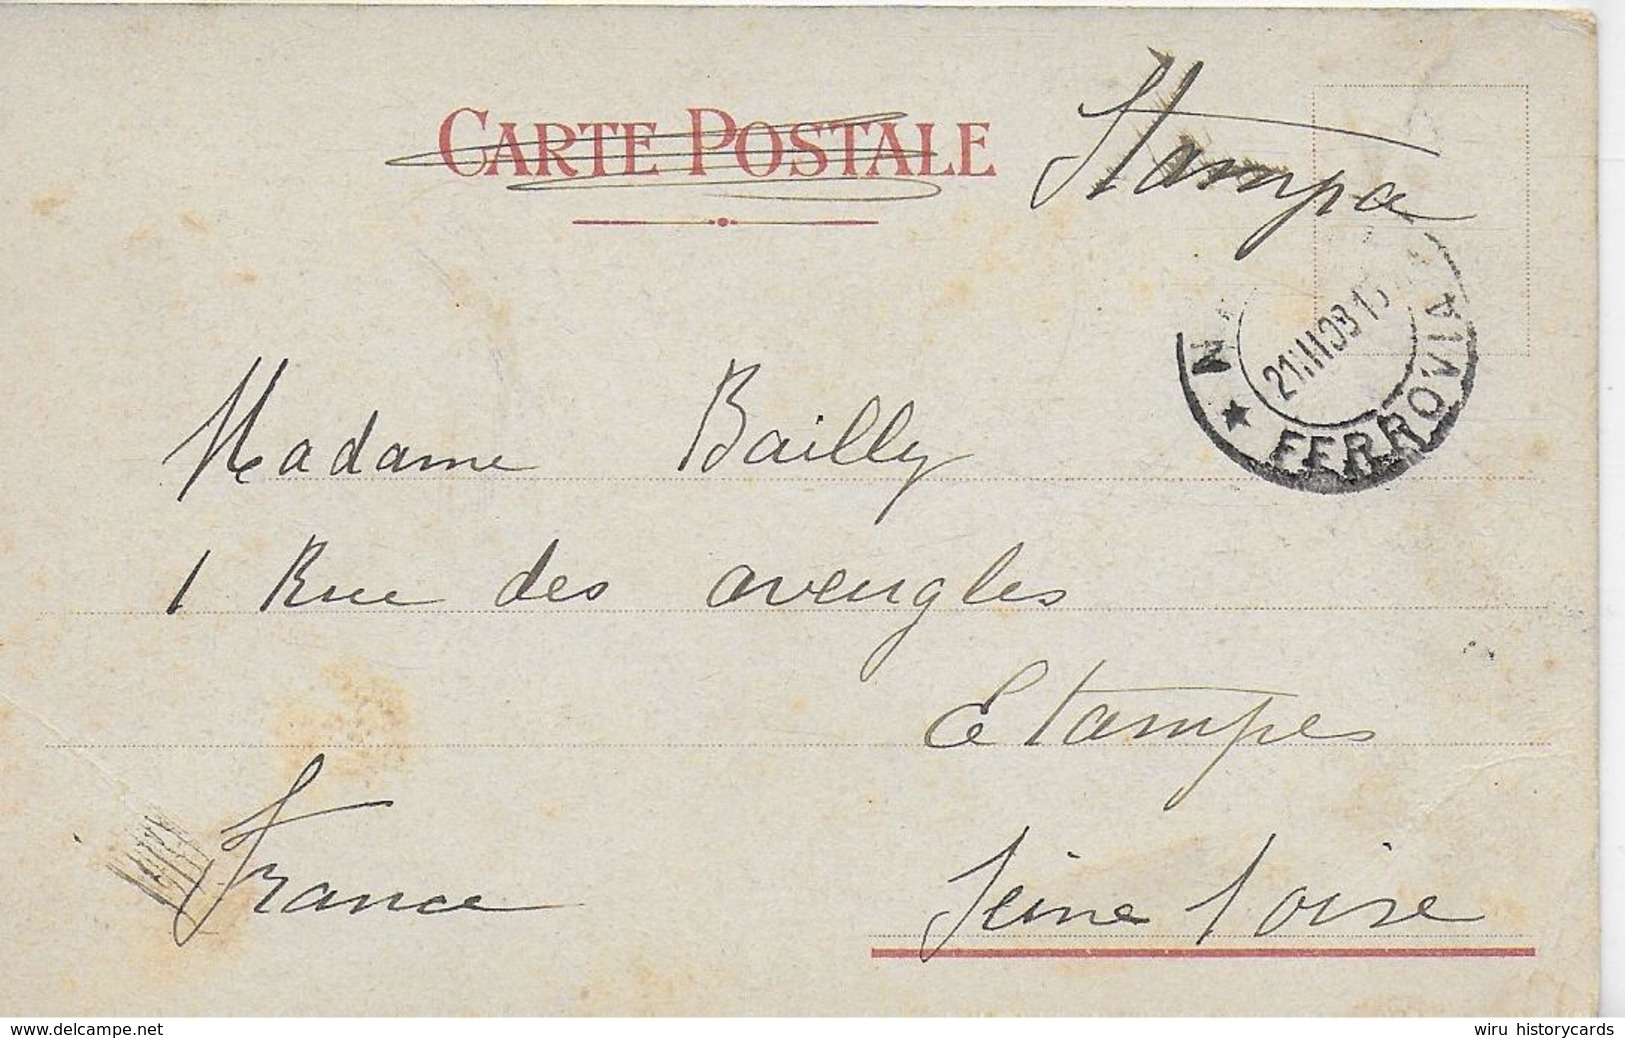 CARTE POSTALE
Stampa
FERROVIA
Madame Bailly
1 Rue des aveugles
Etampes
France
Seine l oise
www.delcampe.net
wiru historycards